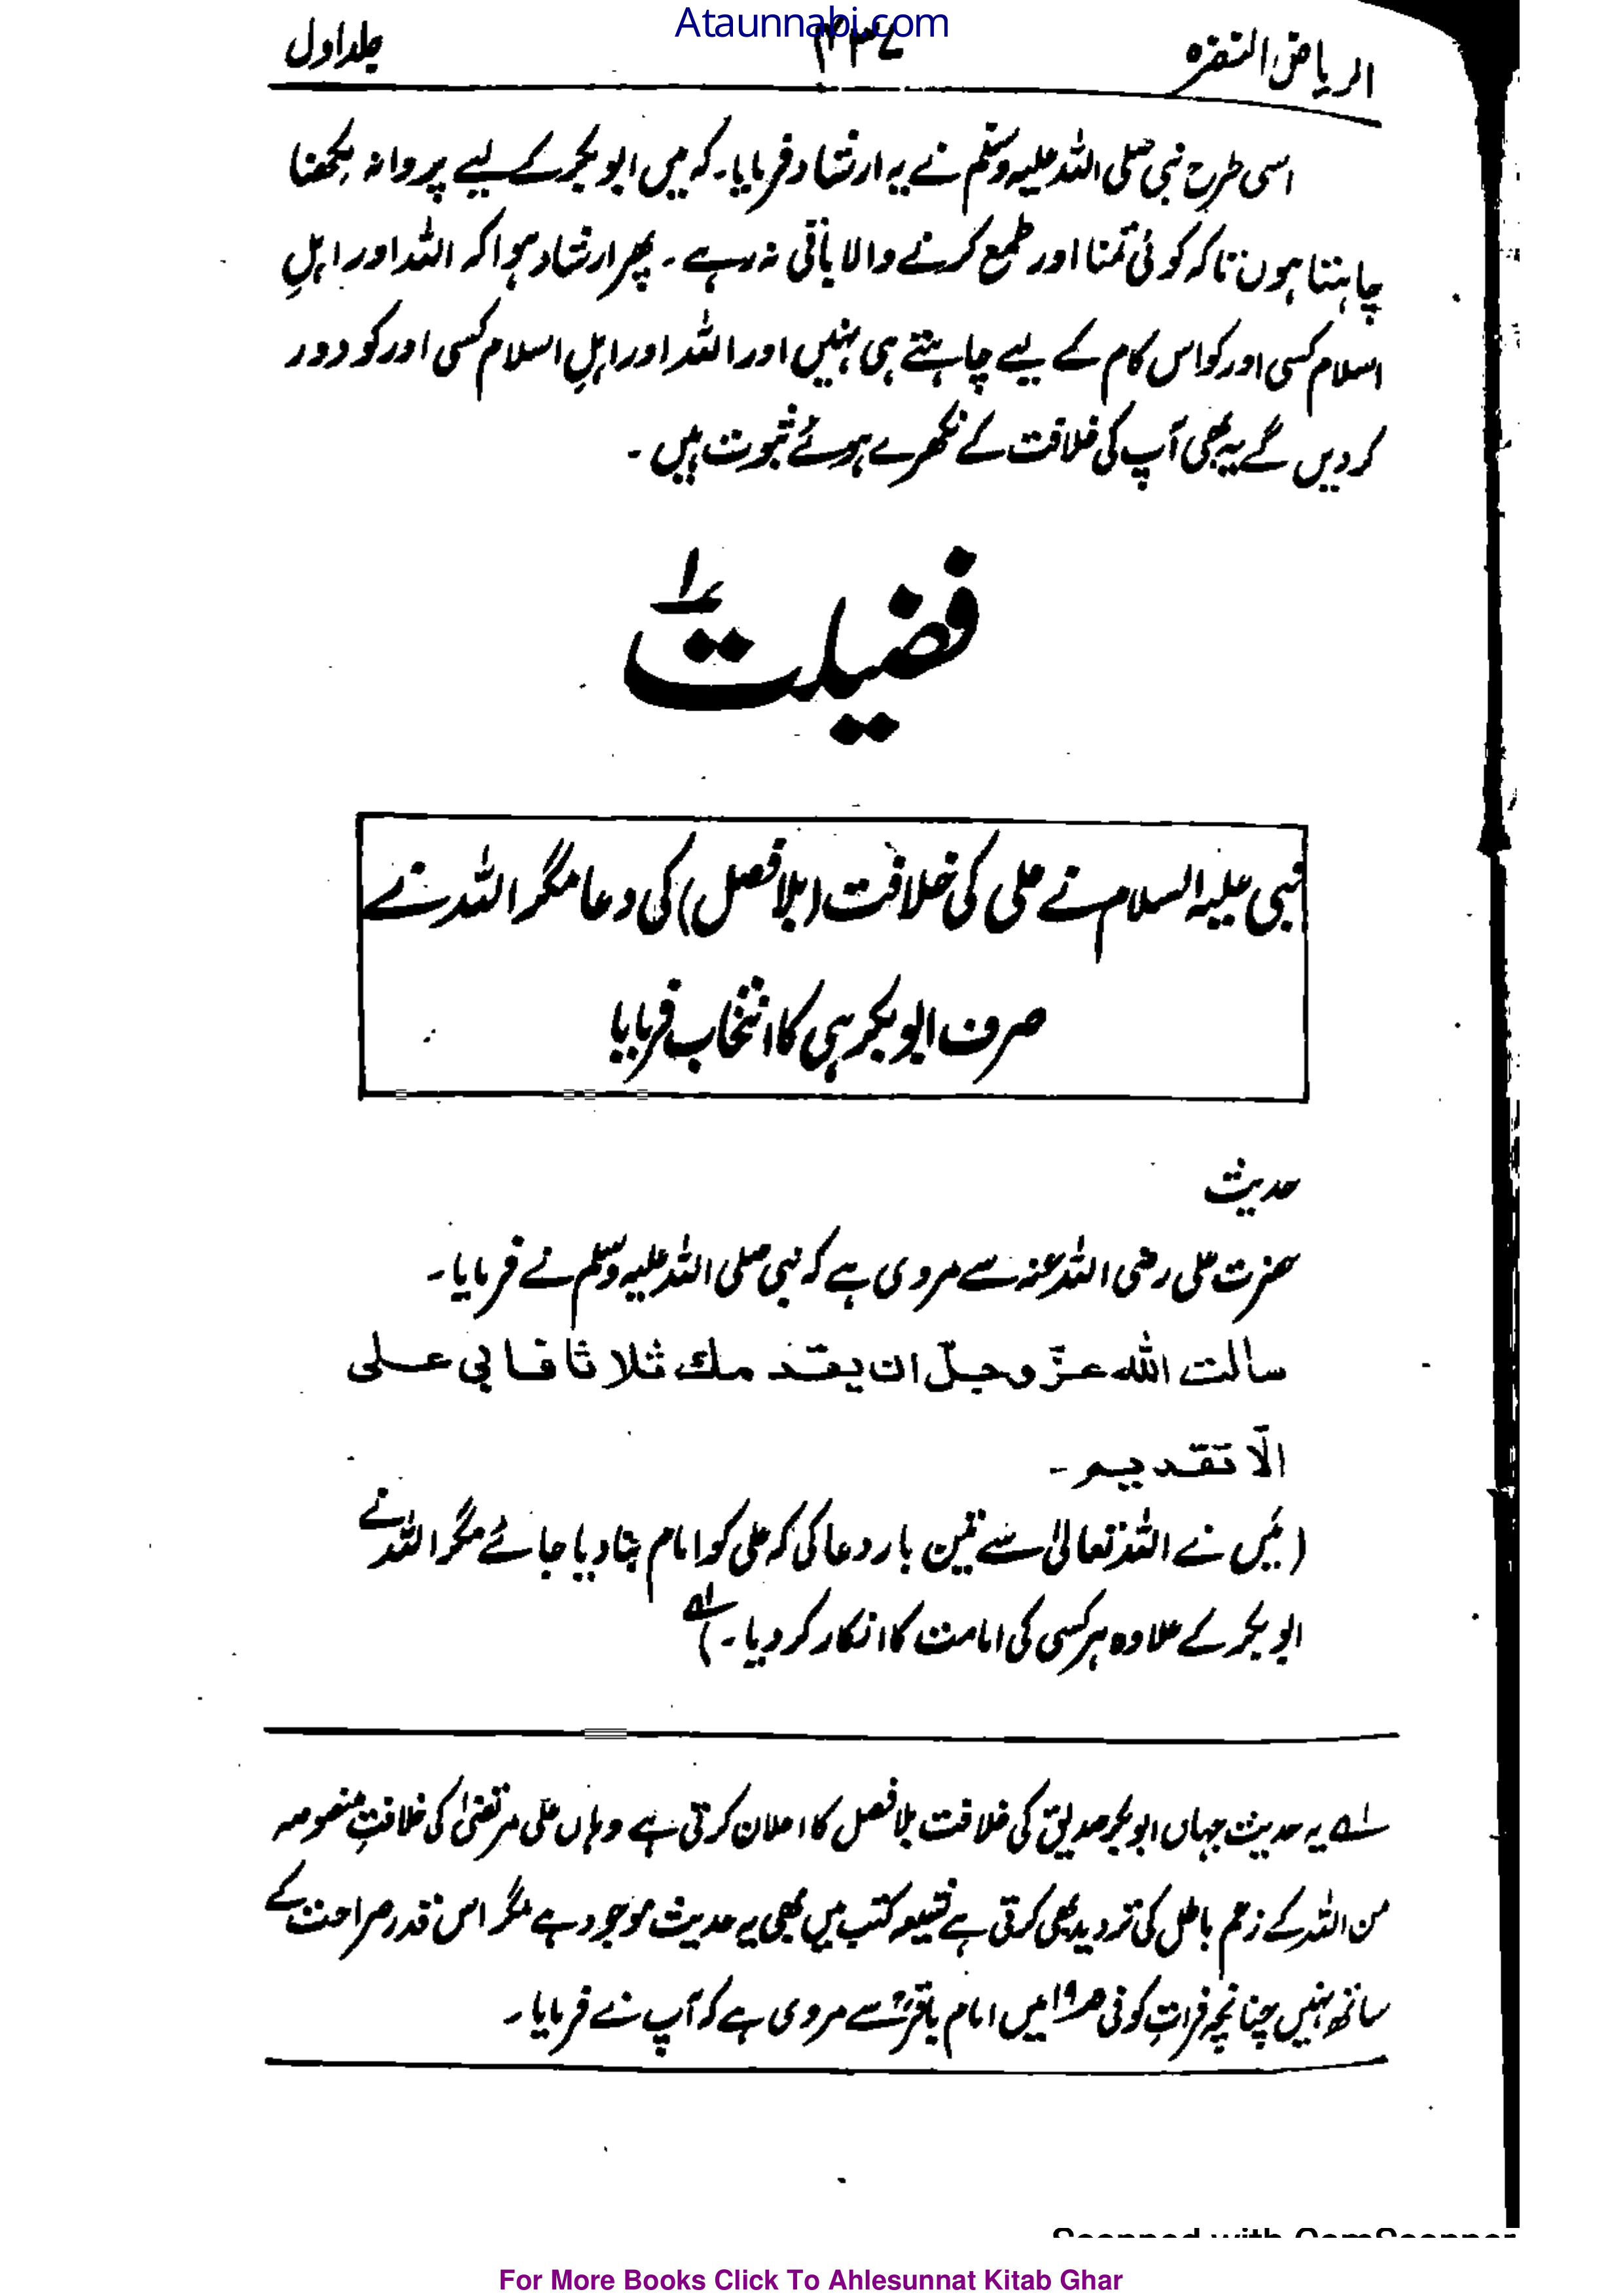 Ataunnabi.com
الریاض النضرہ جلد اول
اسی طرح نبی صلی اللہ علیہ وسلم نے یہ ارشاد فرمایا۔ کہ میں ابو بکر کے لیے پروانہ لکھنا
چاہتا ہوں تاکہ کوئی تمنا اور طمع کرنے والا باقی نہ رہے ۔ پھر ارشاد ہوا کہ اللہ اور اہلِ
اسلام کسی اور کو اس کام کے لیے چاہتے ہی نہیں اور اللہ اور اہلِ اسلام کسی اور کو دور
کر دیں گے یہ بھی آپ کی خلافت کے نکھرے ہوئے ثبوت ہیں ۔
فضیلت
نبی علیہ السلام نے علی کی خلافت (بلا فصل) کی دعا مگر اللہ نے
صرف ابو بکر ہی کا انتخاب فرمایا
حدیث
حضرت علی رضی اللہ عنہ سے مروی ہے کہ نبی صلی اللہ علیہ وسلم نے فرمایا۔
سالت الله عزّ وجلّ ان يقدّ مك ثلاثا فابي على
الّا تقديم -
(میں نے اللہ تعالیٰ سے تین بار دعا کی کہ علی کو امام بنا دیا جائے مگر اللہ نے
ابو بکر کے علاوہ ہر کسی کی امامت کا انکار کر دیا۔)؂۱
؂۱ یہ حدیث جہاں ابو بکر صدیق کی خلافت بلا فصل کا اعلان کرتی ہے وہاں علی مرتضیٰ کی خلافتِ منصوصہ
من اللہ کے زعم باطل کی تردید بھی کرتی ہے شیعہ کتب میں بھی یہ حدیث موجود ہے مگر اس قدر صراحت کے
ساتھ نہیں چنانچہ فراتِ کوفی صـ۱۹ میں امام باقرؓ سے مروی ہے کہ آپ نے فرمایا۔
Scanned with CamScanner
For More Books Click To Ahlesunnat Kitab Ghar